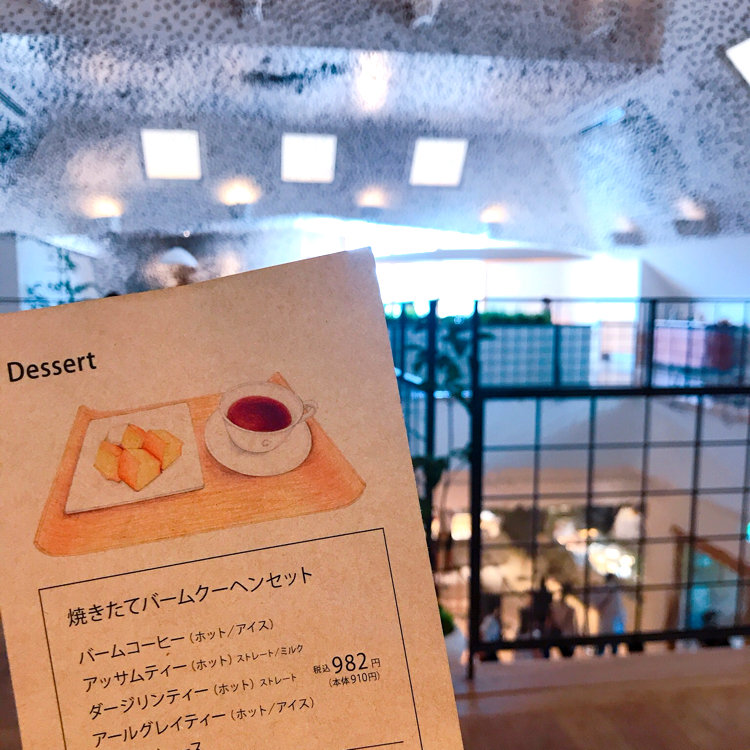 Dessert
焼きたてバームクーヘンセット
バームコーヒー（ホット/アイス）
アッサムティー（ホット）ストレート/ミルク
税込982円
ダージリンティー（ホット）ストレート
（本体910円）
アールグレイティー（ホット/アイス）